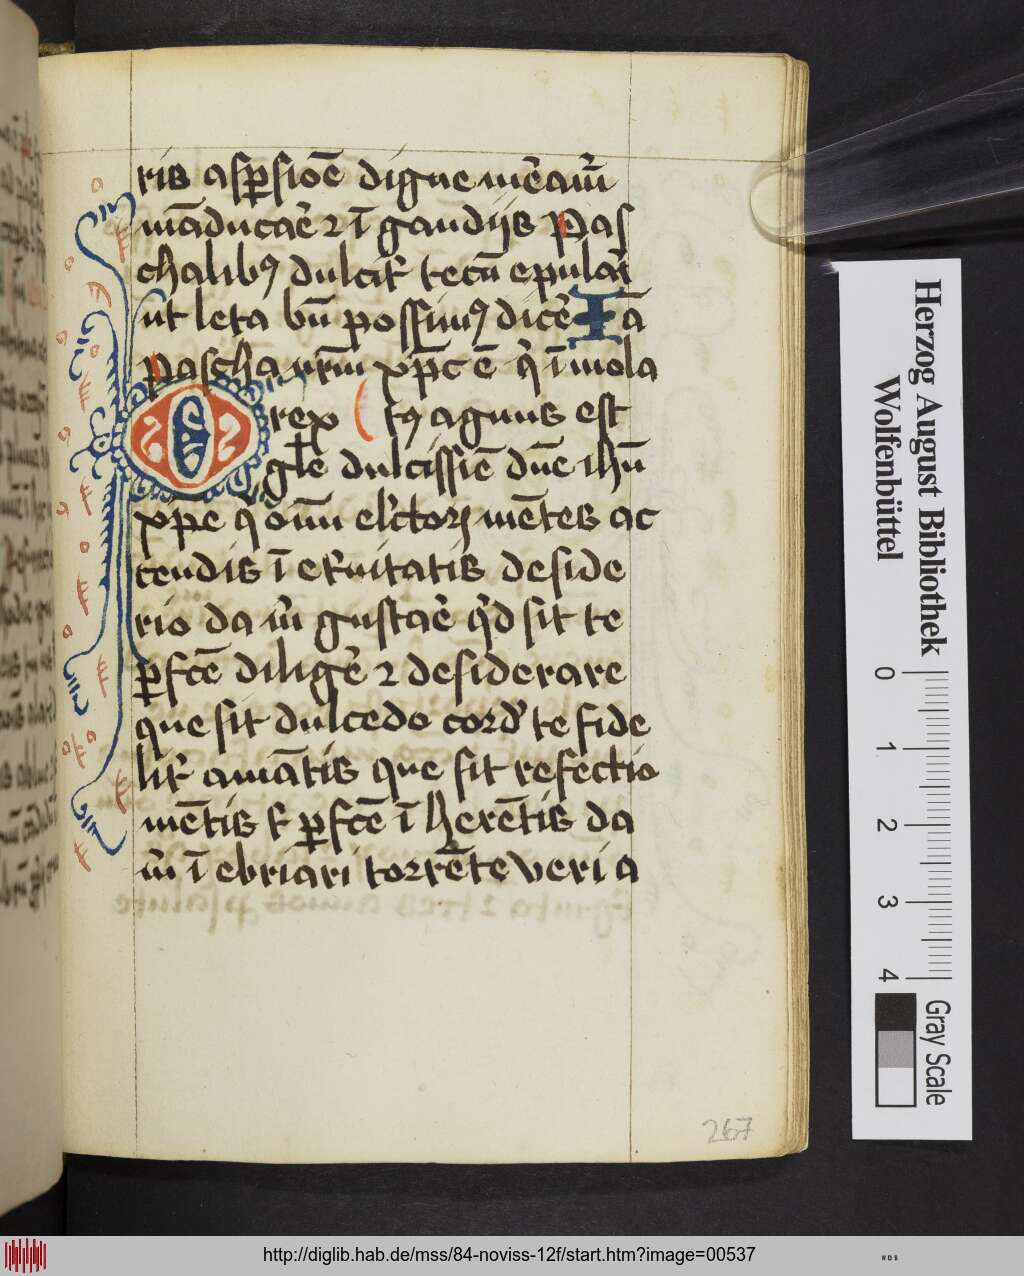 ris aspsiōe digne mēam̄
māducaē ⁊ ī gaudijs Pas
chalibꝰ dulcit̄ tecū epulari
ut leta bn̄ possimꝰ dicē Iā
pascha nr̄m xp̄c ē q̄ īmola
rex tꝰ agnus est
gl̄e dulcissiē dn̄e ihū
xp̄e q̄ oīm elc̄toꝝ mētes ac
cendis ī et̄nitatis deside
rio da m̄ gustaē q̄d sit te
ꝑfc̄e diligē ⁊ desiderare
que sit dulcedo cord̓ te fide
lit̄ amātis que sit refectio
mētis t̄ ꝑfc̄e ī herētis da
m̄ ī ebriari torrēte veri a
267
Herzog August Bibliothek
Wolfenbüttel
0 1 2 3 4
Gray Scale
http://diglib.hab.de/mss/84-noviss-12f/start.htm?image=00537